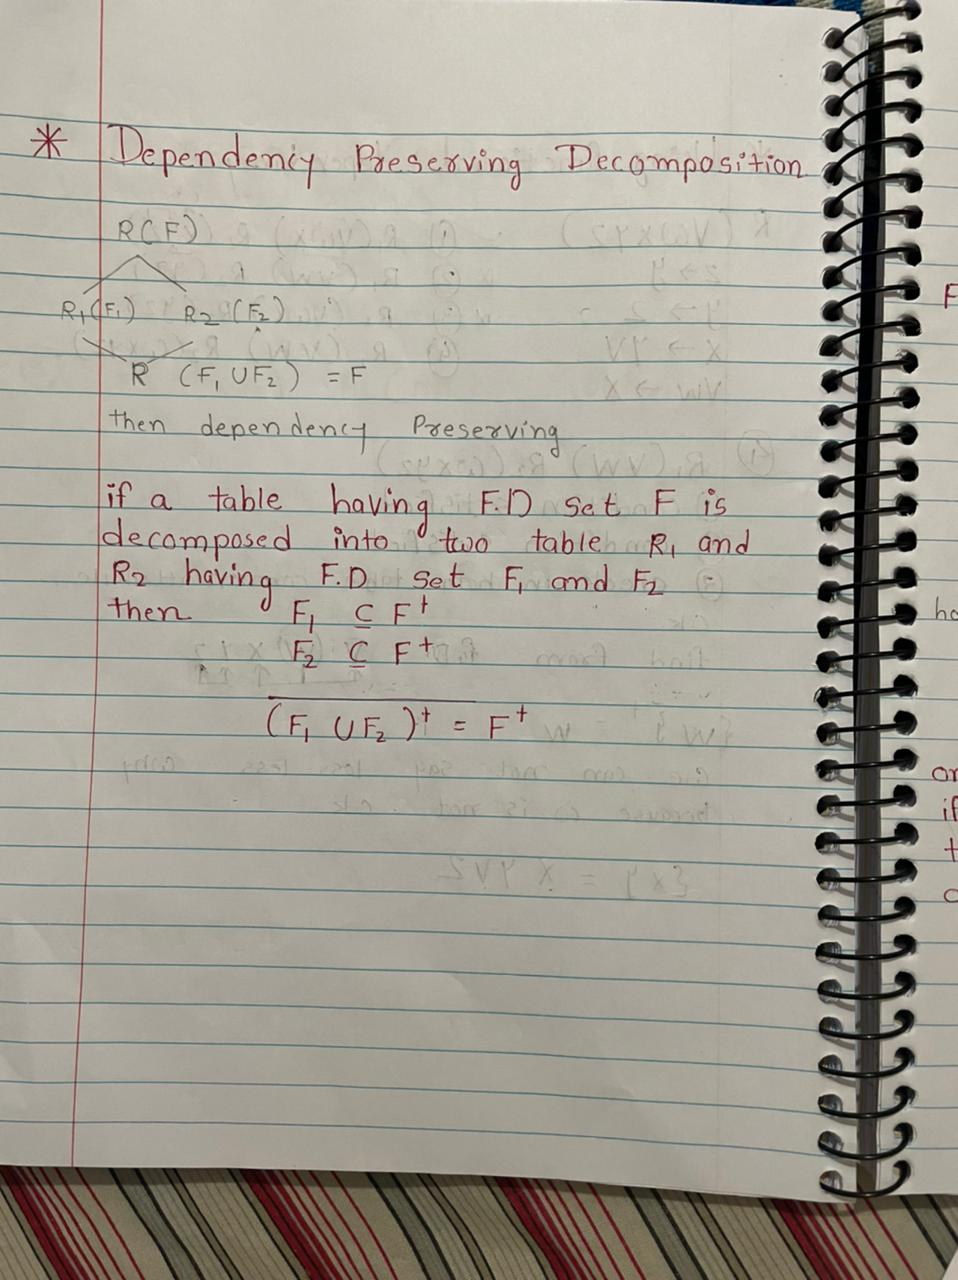 * Dependency Preserving Decomposition
R(F)
R₁(F₁) R₂(F₂)
R (F₁ ∪ F₂) = F
then dependency Preserving
if a table having F.D set F is
decomposed into two table R₁ and
R₂ having F.D set F₁ and F₂
then F₁ ⊆ F⁺
F₂ ⊆ F⁺
(F₁ ∪ F₂)⁺ = F⁺
F
ho
or
if
t